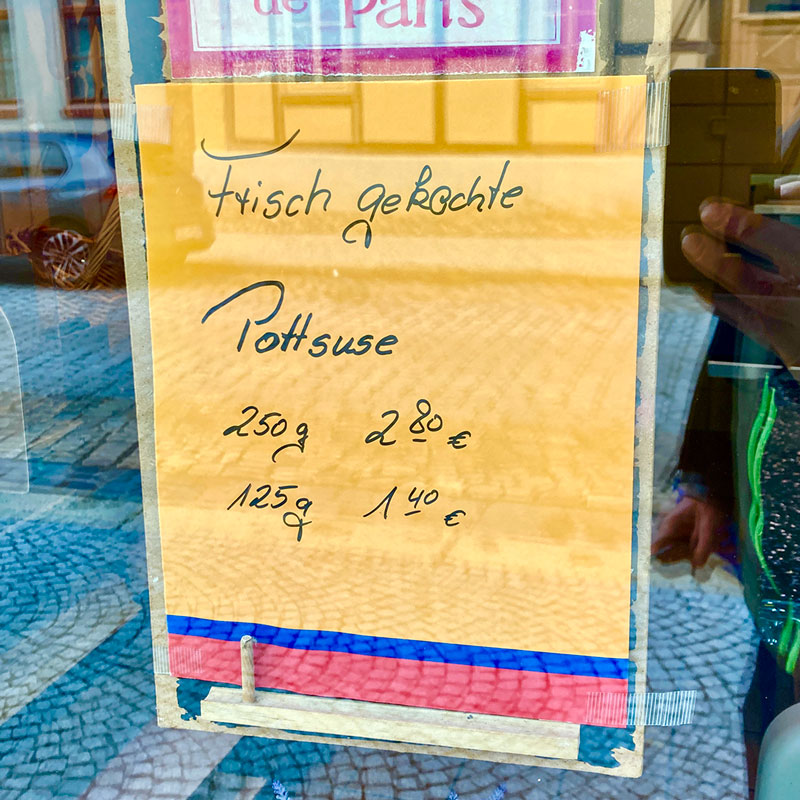 de Paris
Frisch gekochte
Pottsuse
250g 2 80 €
125g 1 40 €